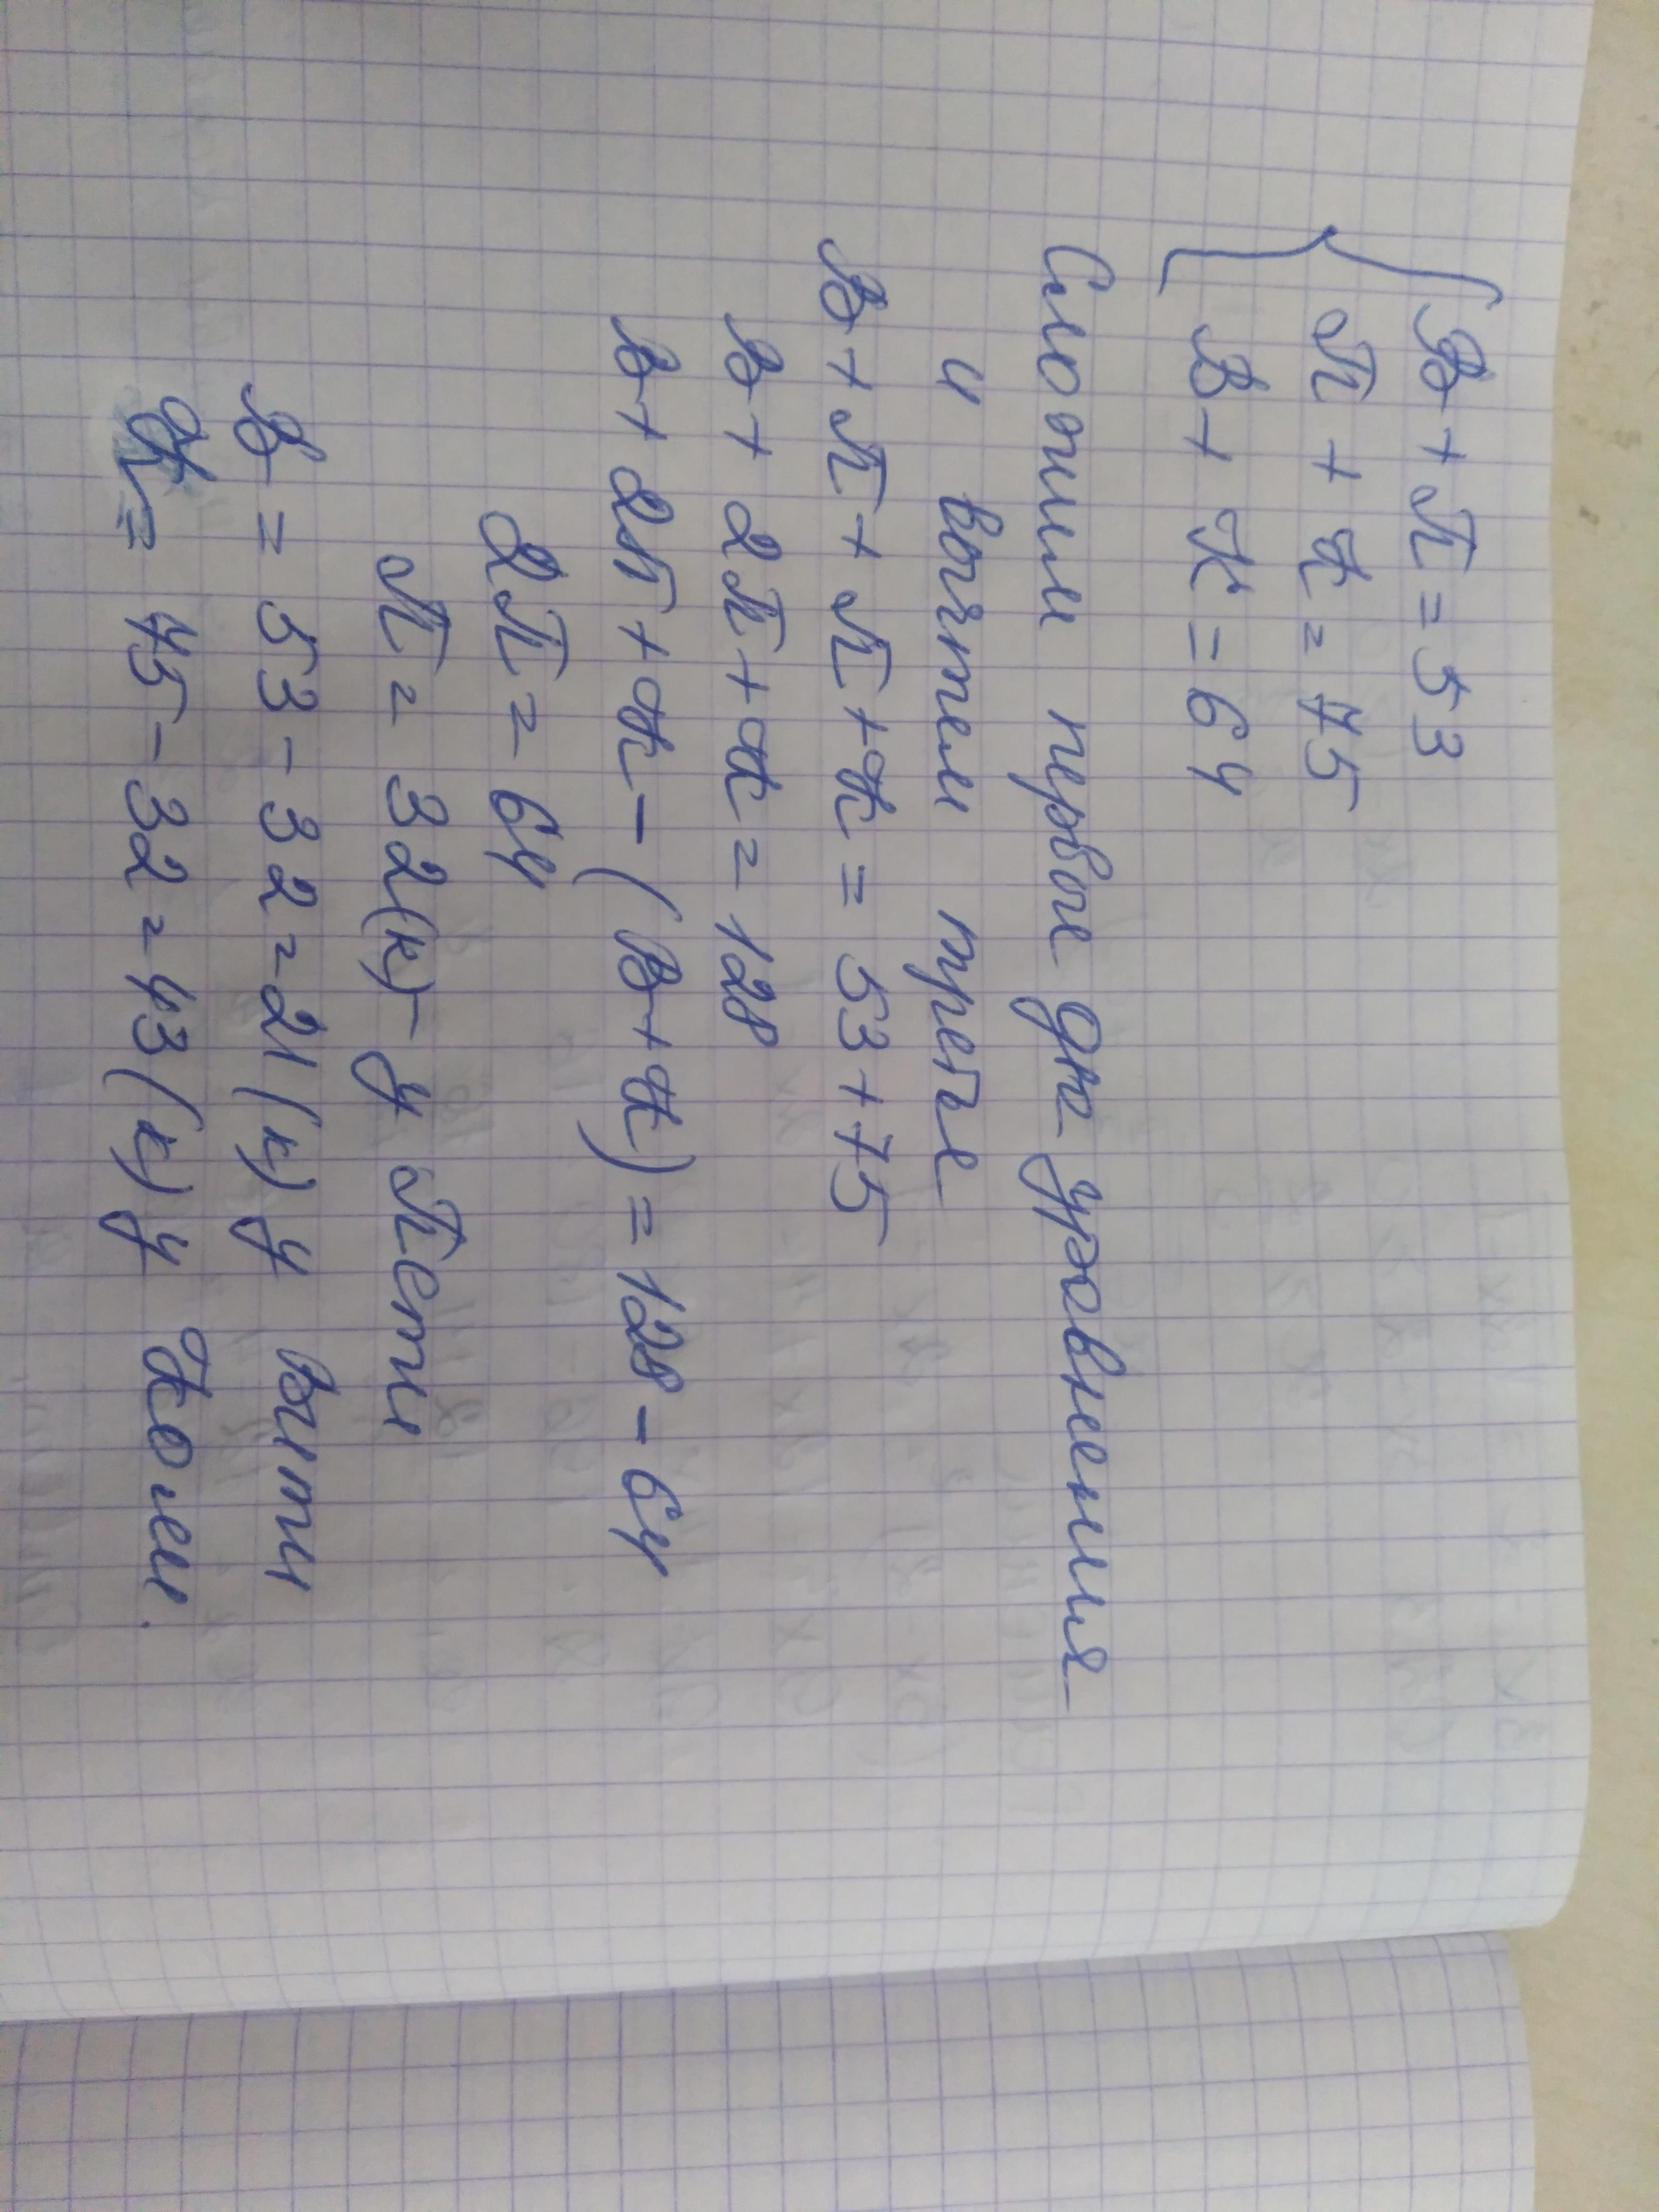 В + П = 53
П + К = 75
В + К = 64
Сложим первые два уравнения
и вычтем третье
В + П + П + К = 53 + 75
В + 2П + К = 128
В + 2П + К - (В + К) = 128 - 64
2П = 64
П = 32(к) - у Пети
В = 53 - 32 = 21 (к) у Вити
К = 75 - 32 = 43 (к) у Коли.